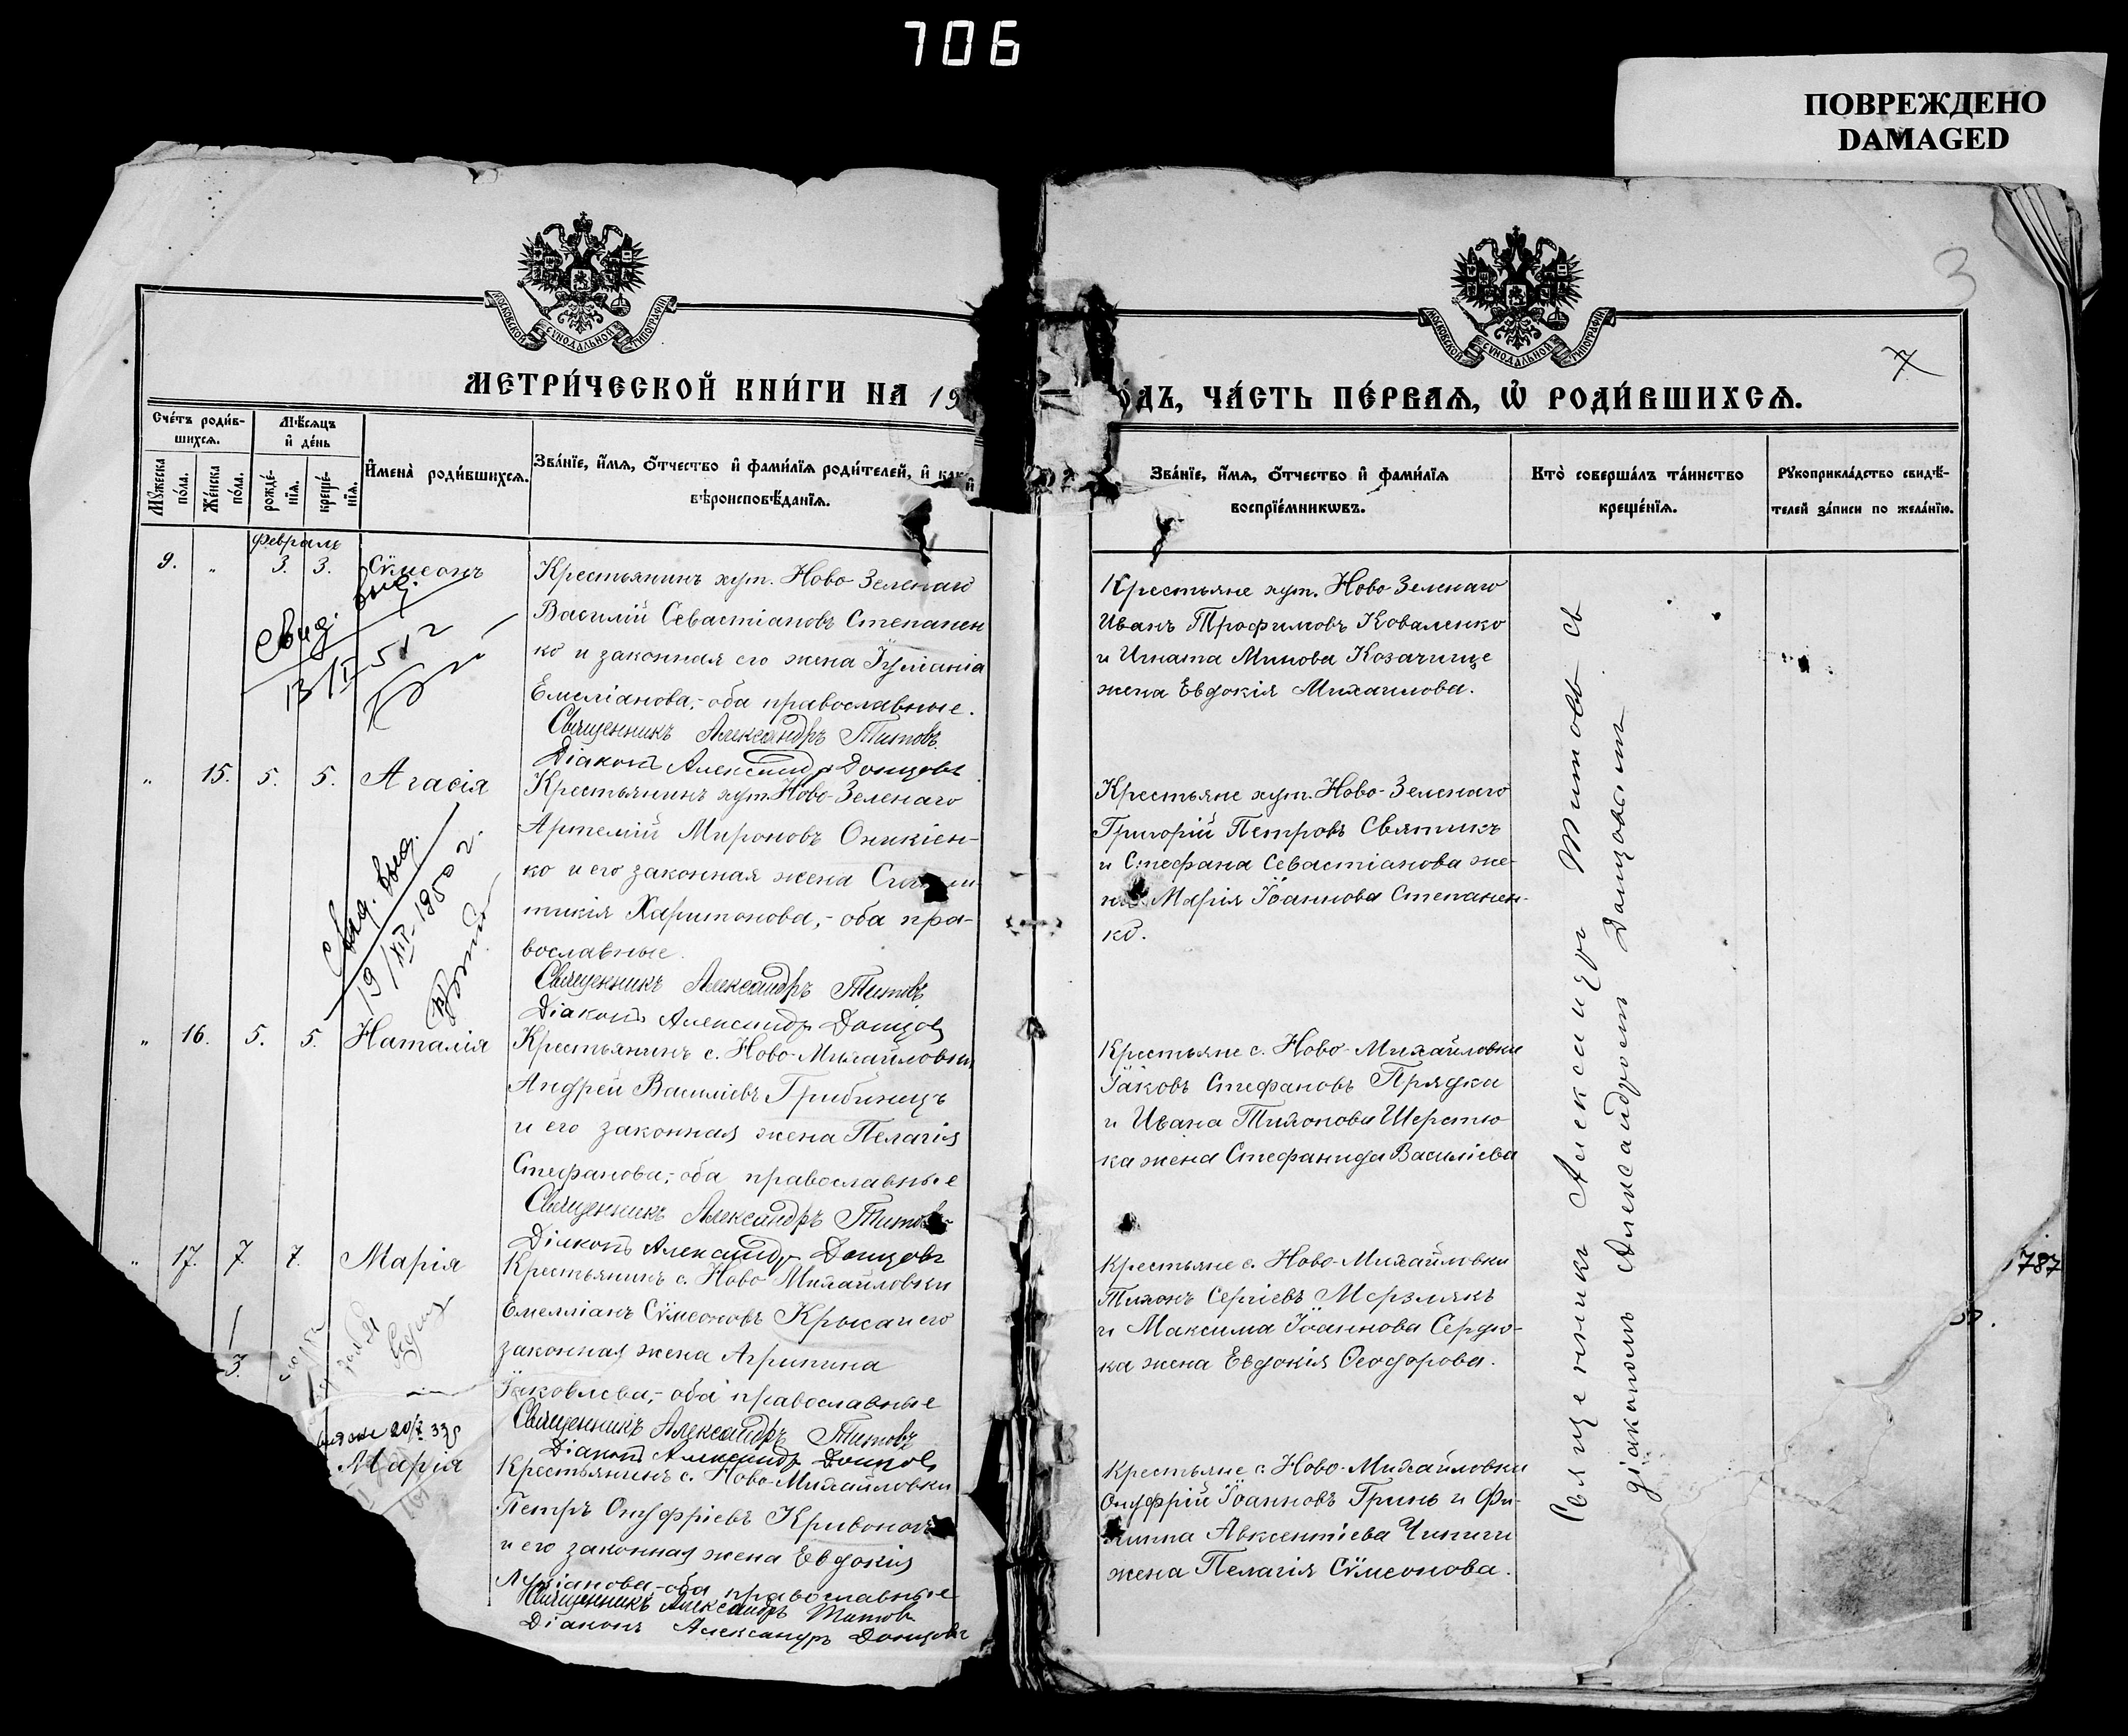 706
ПОВРЕЖДЕНО
DAMAGED
3
7
МОСКОВСКОЙ СѴНОДАЛЬНОЙ ТИПОГРАФІИ
МОСКОВСКОЙ СѴНОДАЛЬНОЙ ТИПОГРАФІИ
МЕТРИ́ЧЕСКОЙ КНИ́ГИ НА 19
О́ДЪ, ЧА́СТЬ ПЕ́РВАѦ, Ѡ҆ РОДИ́ВШИХСѦ.
Сче́тъ роди́в-
шихсѧ.
Мꙋ́жеска
по́ла.
Же́нска
по́ла.
Мѣ́сѧцъ
и҆ де́нь
рожде́-
нїѧ.
креще́-
нїѧ.
И҆мена̀ роди́вшихсѧ.
Зва́нїе, и҆́мѧ, ѻ҆́тчество и҆ фами́лїѧ роди́телей, и҆ как
вѣроисповѣ́данїѧ.
Зва́нїе, и҆́мѧ, ѻ҆́тчество и҆ фами́лїѧ
воспрїе́мникѡвъ.
Кто̀ соверша́лъ та́инство
креще́нїѧ.
Рꙋкоприкла́дство свидѣ́-
телей за́писи по жела́нїю.
Февраль
9. „ 3. 3. Сѷмеонъ
Свид. выд.
13/II 51 г
Крестьянинъ хут. Ново-Зеленаго
Василій Севастіановъ Степанен
ко и законная его жена Іуліанія
Емеліанова,- оба православные.
Священникъ Александръ Титовъ
Діаконъ Александръ Донцовъ
Крестьяне хут. Ново-Зеленаго
Иванъ Трофимовъ Коваленко
и Игната Минова Козачище
жена Евдокія Михаилова.
„ 15. 5. 5. Агасія
Свид. выд.
19/XII-1950 г.
Крестьянинъ хут. Ново-Зеленаго
Артемій Мироновъ Оникіен-
ко и его законная жена
тикія Харитонова,- оба пра-
вославные.
Священникъ Александръ Титовъ
Діаконъ Александръ Донцовъ
Крестьяне хут. Ново-Зеленаго
Григорій Петровъ Святикъ
и Стефана Севастіанова же-
на Марія Іоаннова Степанен-
ко.
„ 16. 5. 5. Наталія
Крестьянинъ с. Ново-Михайловки
Андрей Василіевъ Грибиницъ
и его законная жена Пелагія
Стефанова,- оба православные
Священникъ Александръ Титовъ
Діаконъ Александръ Донцовъ
Крестьяне с. Ново-Михайловки
Іаковъ Стефановъ Прядка
и Ивана Тихонова Шерстю-
ка жена Стефанида Василіева
„ 17. 7. 7. Марія
Крестьянинъ с. Ново-Михайловки
Емелліанъ Сѷмеоновъ Крыса и его
законная жена Агрипина
Іаковлева,- оба православные
Священникъ Александръ Титовъ
Діаконъ Александръ Донцовъ
Крестьяне с. Ново-Михайловки
Тихонъ Сергіевъ Мерзлякъ
и Максима Іоаннова Сердю-
ка жена Евдокія Ѳеодорова.
3.
Марія
Крестьянинъ с. Ново-Михайловки
Петръ Онуфріевъ Кривонога
и его законная жена Евдокія
Лукіанова,- оба православные
Священникъ Александръ Титовъ
Діаконъ Александръ Донцовъ
Крестьяне с. Ново-Михайловки
Онуфрій Іоанновъ Гринь и Фи-
липпа Авксентіева Чипиги
жена Пелагія Сѷмеонова.
Священникъ Александръ Титовъ съ
діакономъ Александромъ Донцовымъ
787